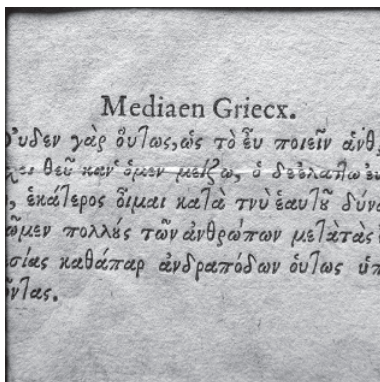 Mediaen Griecx.
Οὐδεν γὰρ ὅυτως, ὡς τὸ ἐυ ποιεῖν ἀνθ
θεῦ καν' ὁμεν μείζω, ὁ δε
, ἑκάτερος ὄιμαι κατὰ τνὺ ἑαυτοῦ δύνα
ῶμεν πολλύς τῶν ἀνθρώπων μετὰτὰς
σίας καθάπαρ ἀνδραπόδων ὁυτως ὑπ
ῦντας.